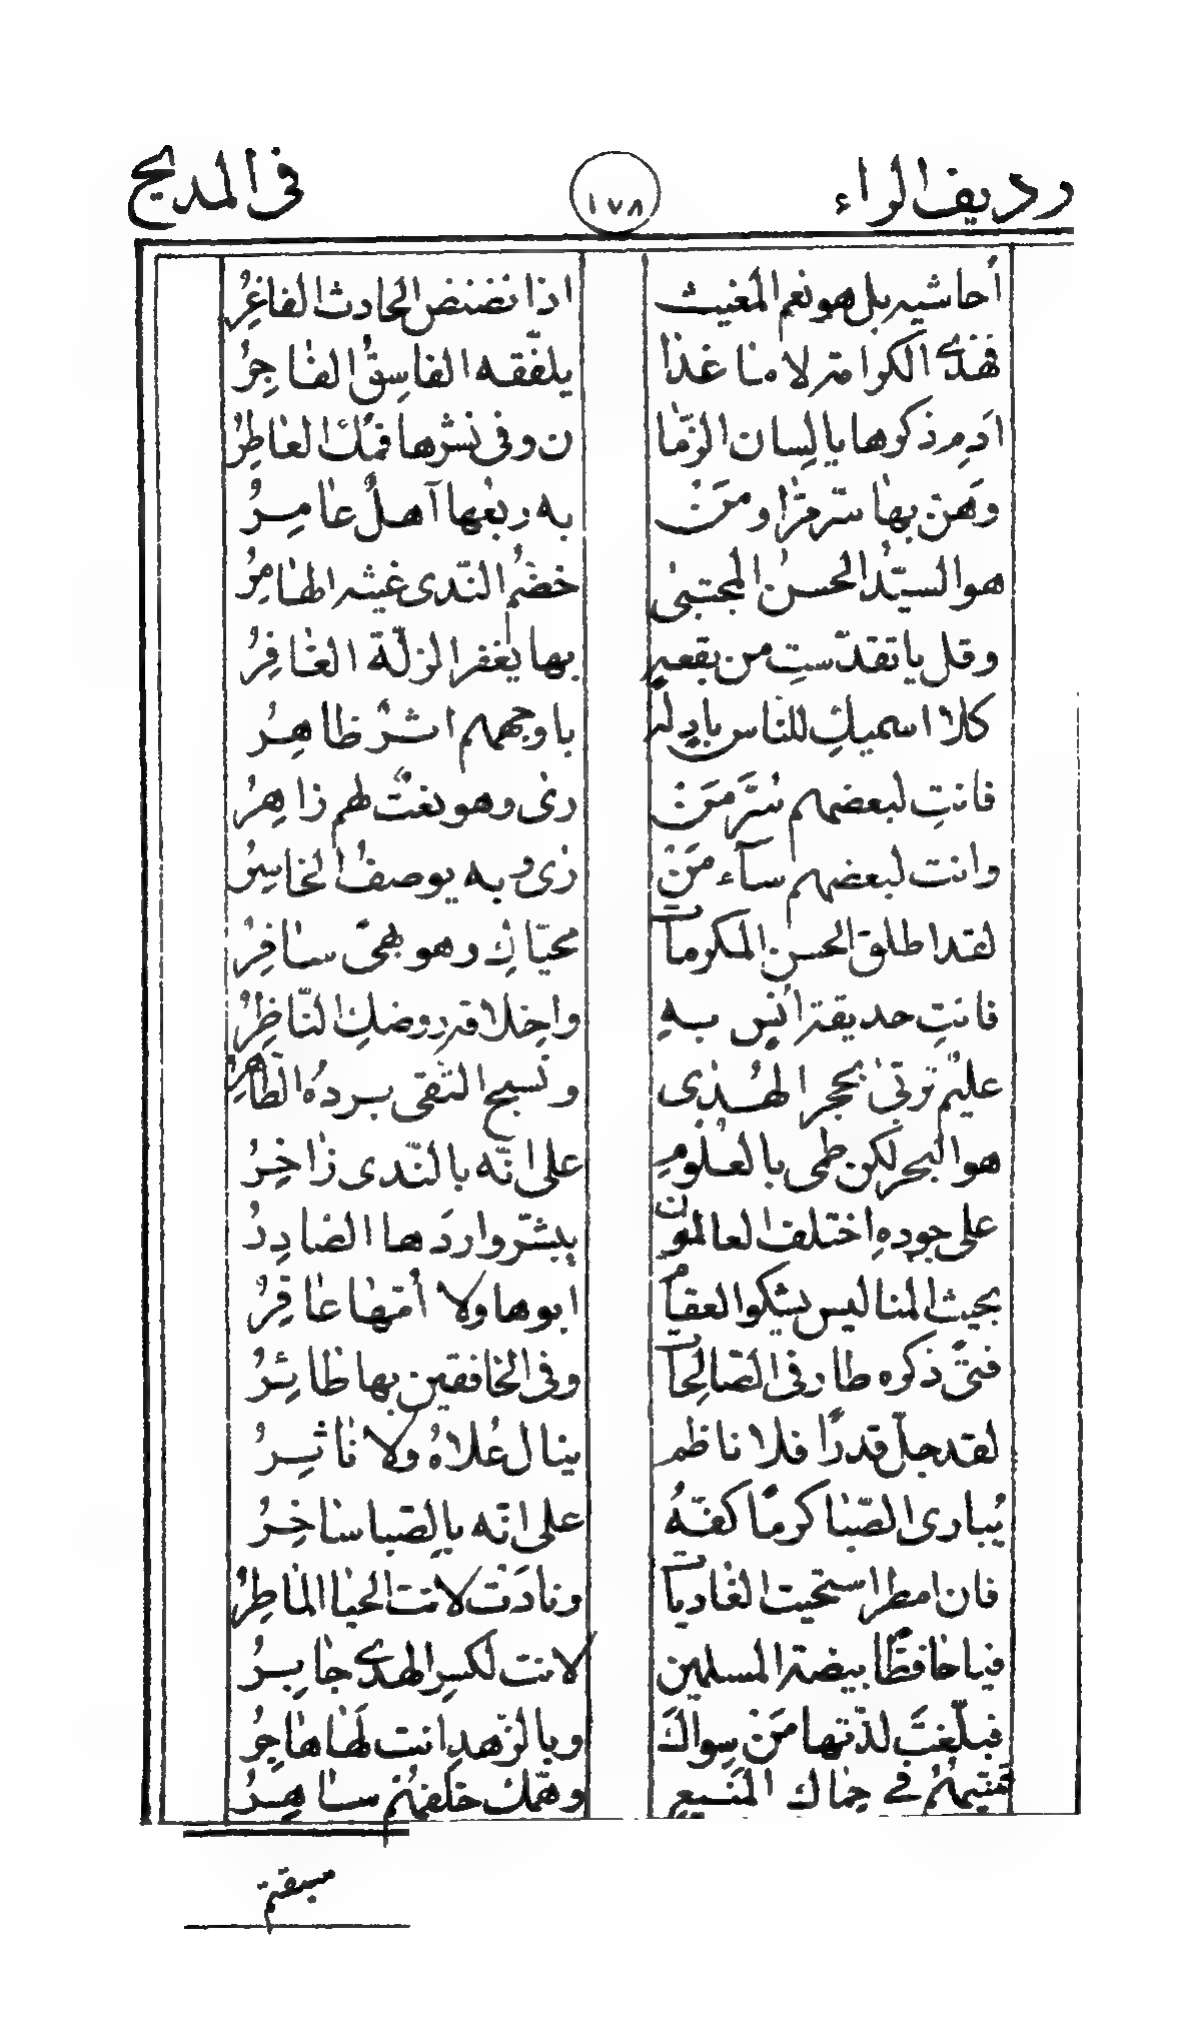 رديف الراء ١٧٨ في المديح
أحاشيه بل هو نعم المغيث اذا نضنض الحادث الفاغرُ
فهذى الكرامة لا ما غذا يلفّقه الفاسقُ الفاجرُ
ادم ذكرها يا لسان الزّما ن وفي نشرها فمك العاطرُ
وهن بها سرّ من را ومن به ربعها آهلٌ عامرُ
هو السيّدُ الحسنُ المجتبى خضمُّ النّدى غيثه الهامرُ
وقل يا تقدّستِ من بقعةٍ بها يَغفر الزلّة الغافرُ
كلا اسميكِ للناس بادٍ له باوجههم اثرٌ ظاهرُ
فانتِ لبعضهم سُرَّ مَنْ رئ وهو نعتٌ لهم زاهرُ
وانت لبعضهم سآء مَنْ رئ وبه يوصفُ الخاسرُ
لقد اطلق الحسن المكرمات محيّاكِ وهو بهىٌّ سافرُ
فانتِ حديقة انسٍ بهِ واخلاقه روضكِ النّاظرُ
عليمٌ تربّى بحجر الهُدى ونسج التّقى بردُه الطّاهرُ
هو البحر لكن طمى بالعلومِ على انّه بالنّدى زاخرُ
على جودهِ اختلف العالمون يبشّر واردَها الصّادرُ
بحيث المنا ليس يشكو العقام ابوها ولا أمّها عاقرُ
فتىً ذكره طار في الصّالحات وفي الخافقين بها طائرُ
لقد جلّ قدرًا فلا ناظم ينال عُلاهُ ولا ناثرُ
يُبارى الصّبا كرمًا كفّهُ على انّه بالصّبا ساخرُ
فان امطر استحيت الغاديات ونادَت لانت الحيا الماطرُ
فيا حافظًا بيضة المسلمين لانت لكسر الهدى جابرُ
فبلّغتَ لذّتها مَنْ سواكَ وبالزهد انت لَها هاجرُ
تنيّمهُمُ في حماك المنيع وهمّك خلفهُمُ ساهرُ